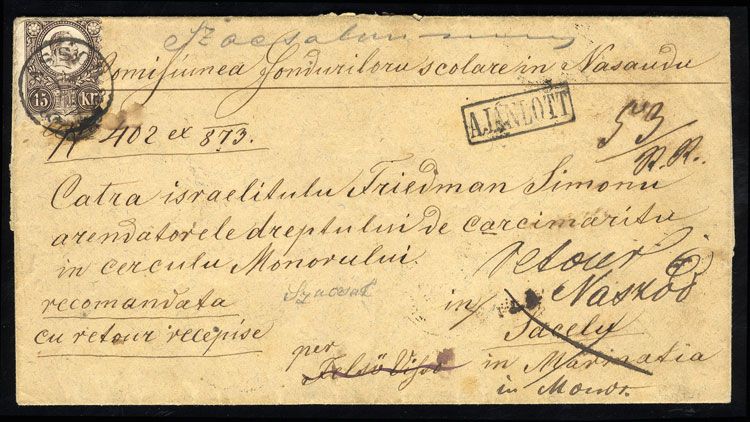 Comisiunea fonduriloru scolare in Nasaudu
15 Kr
N 402 ex 873.
AJÁNLOTT
53
R.R.
Catra israelitulu Friedman Simonu
arendatorele dreptului de carcimaritu
in cerculu Monorului.
retour
Naszód
recomandata
Szacsal
in
Sacely
cu retour recepise
per
Felső Visó
in Marmatia
in Monor.